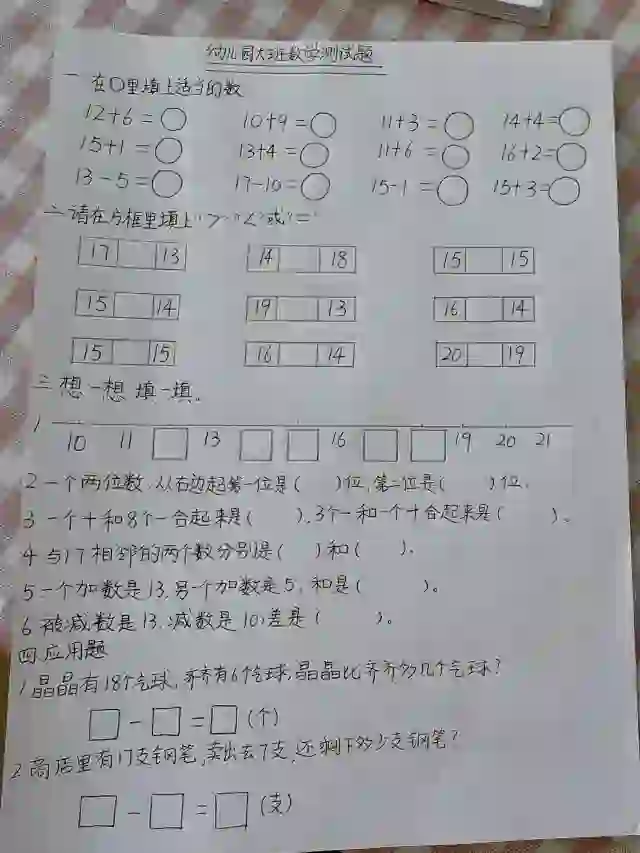 幼儿园大班数学测试题
一 在○里填上适当的数
12+6=○ 10+9=○ 11+3=○ 14+4=○
15+1=○ 13+4=○ 11+6=○ 16+2=○
13-5=○ 17-10=○ 15-1=○ 15+3=○
二 请在方框里填上">""<"或"="
17 13 14 18 15 15
15 14 19 13 16 14
15 15 16 14 20 19
三 想一想 填一填。
1 10 11 □ 13 □ □ 16 □ □ 19 20 21
2 一个两位数,从右边起第一位是( )位,第二位是( )位.
3 一个十和8个一合起来是( ),3个一和一个十合起来是( )。
4 与17相邻的两个数分别是( )和( ).
5 一个加数是13,另一个加数是5,和是( )。
6 被减数是13,减数是10,差是( )。
四.应用题
1 晶晶有18个气球,齐齐有6个气球,晶晶比齐齐多几个气球?
□-□=□(个)
2 商店里有17支钢笔,卖出去7支,还剩下多少支钢笔?
□-□=□(支)